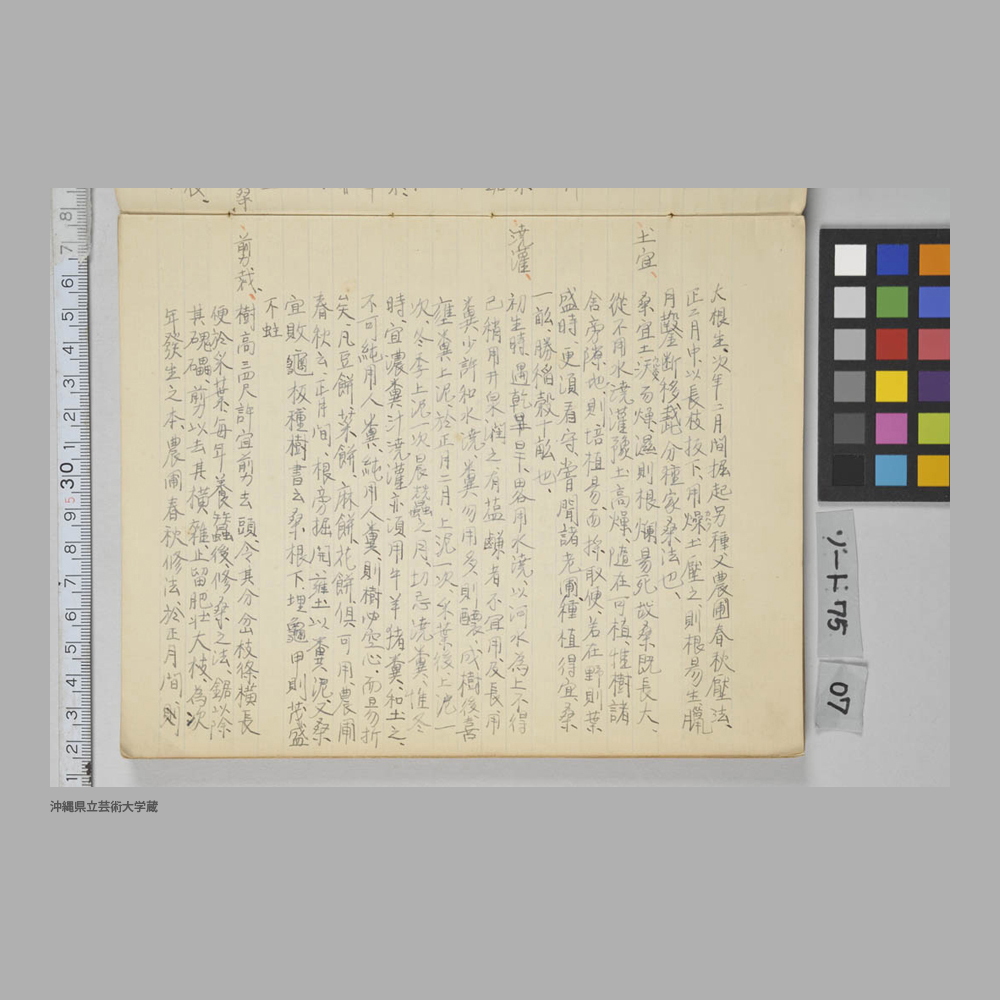 大根生、次年二月間掘起另種又農圃春秋壓法、
正二月中以長枝扳下用燥土壓之則根易生臘
月鑿斷移栽分種家桑法也、
土宜、
桑宜土潑而燥、濕則根爛易死故桑既長大、
從不用水澆灌預土高燥、隨在可植、惟樹諸
舍旁隙地則培植易而採取便、若在野則葉
盛時、更須看守、嘗聞諸老圃種植得宜桑
一畝、勝稲穀十畝也、
澆灌、
初生時、遇乾旱畧用水澆、以河水為上不得
已稍用井泉潤之有塩鹻者不宜用及長用
糞少許和水澆、糞勿用多、則醲、成樹後喜
壅糞上泥、於正月二月、上泥一次、采葉後、上泥一
次、冬季上泥一次、晨蠶之月、切忌澆糞、惟冬
時宜濃糞汁澆灌亦須用牛羊猪糞、和土之、
不可純用人糞、純用人糞、則樹心空心而易折
矣、凡豆餅、菜餅、麻餅、花餅、俱可用、農圃
春秋云、正月間、根旁掘開、壅土以糞泥、又桑
宜敗龜板種樹書云桑根下埋龜甲則茂盛
不蛀
剪栽、
樹高二四尺許宜剪去頭、令其分岔枝條横長
便於采葉、毎年養蠶後、修桑之法、鋸以除
其磈礧、剪以去其横雑、止留肥壮大枝、為次
年發生之本、農圃春秋修法、於正月間則
沖縄県立芸術大学蔵
ゾード75
07